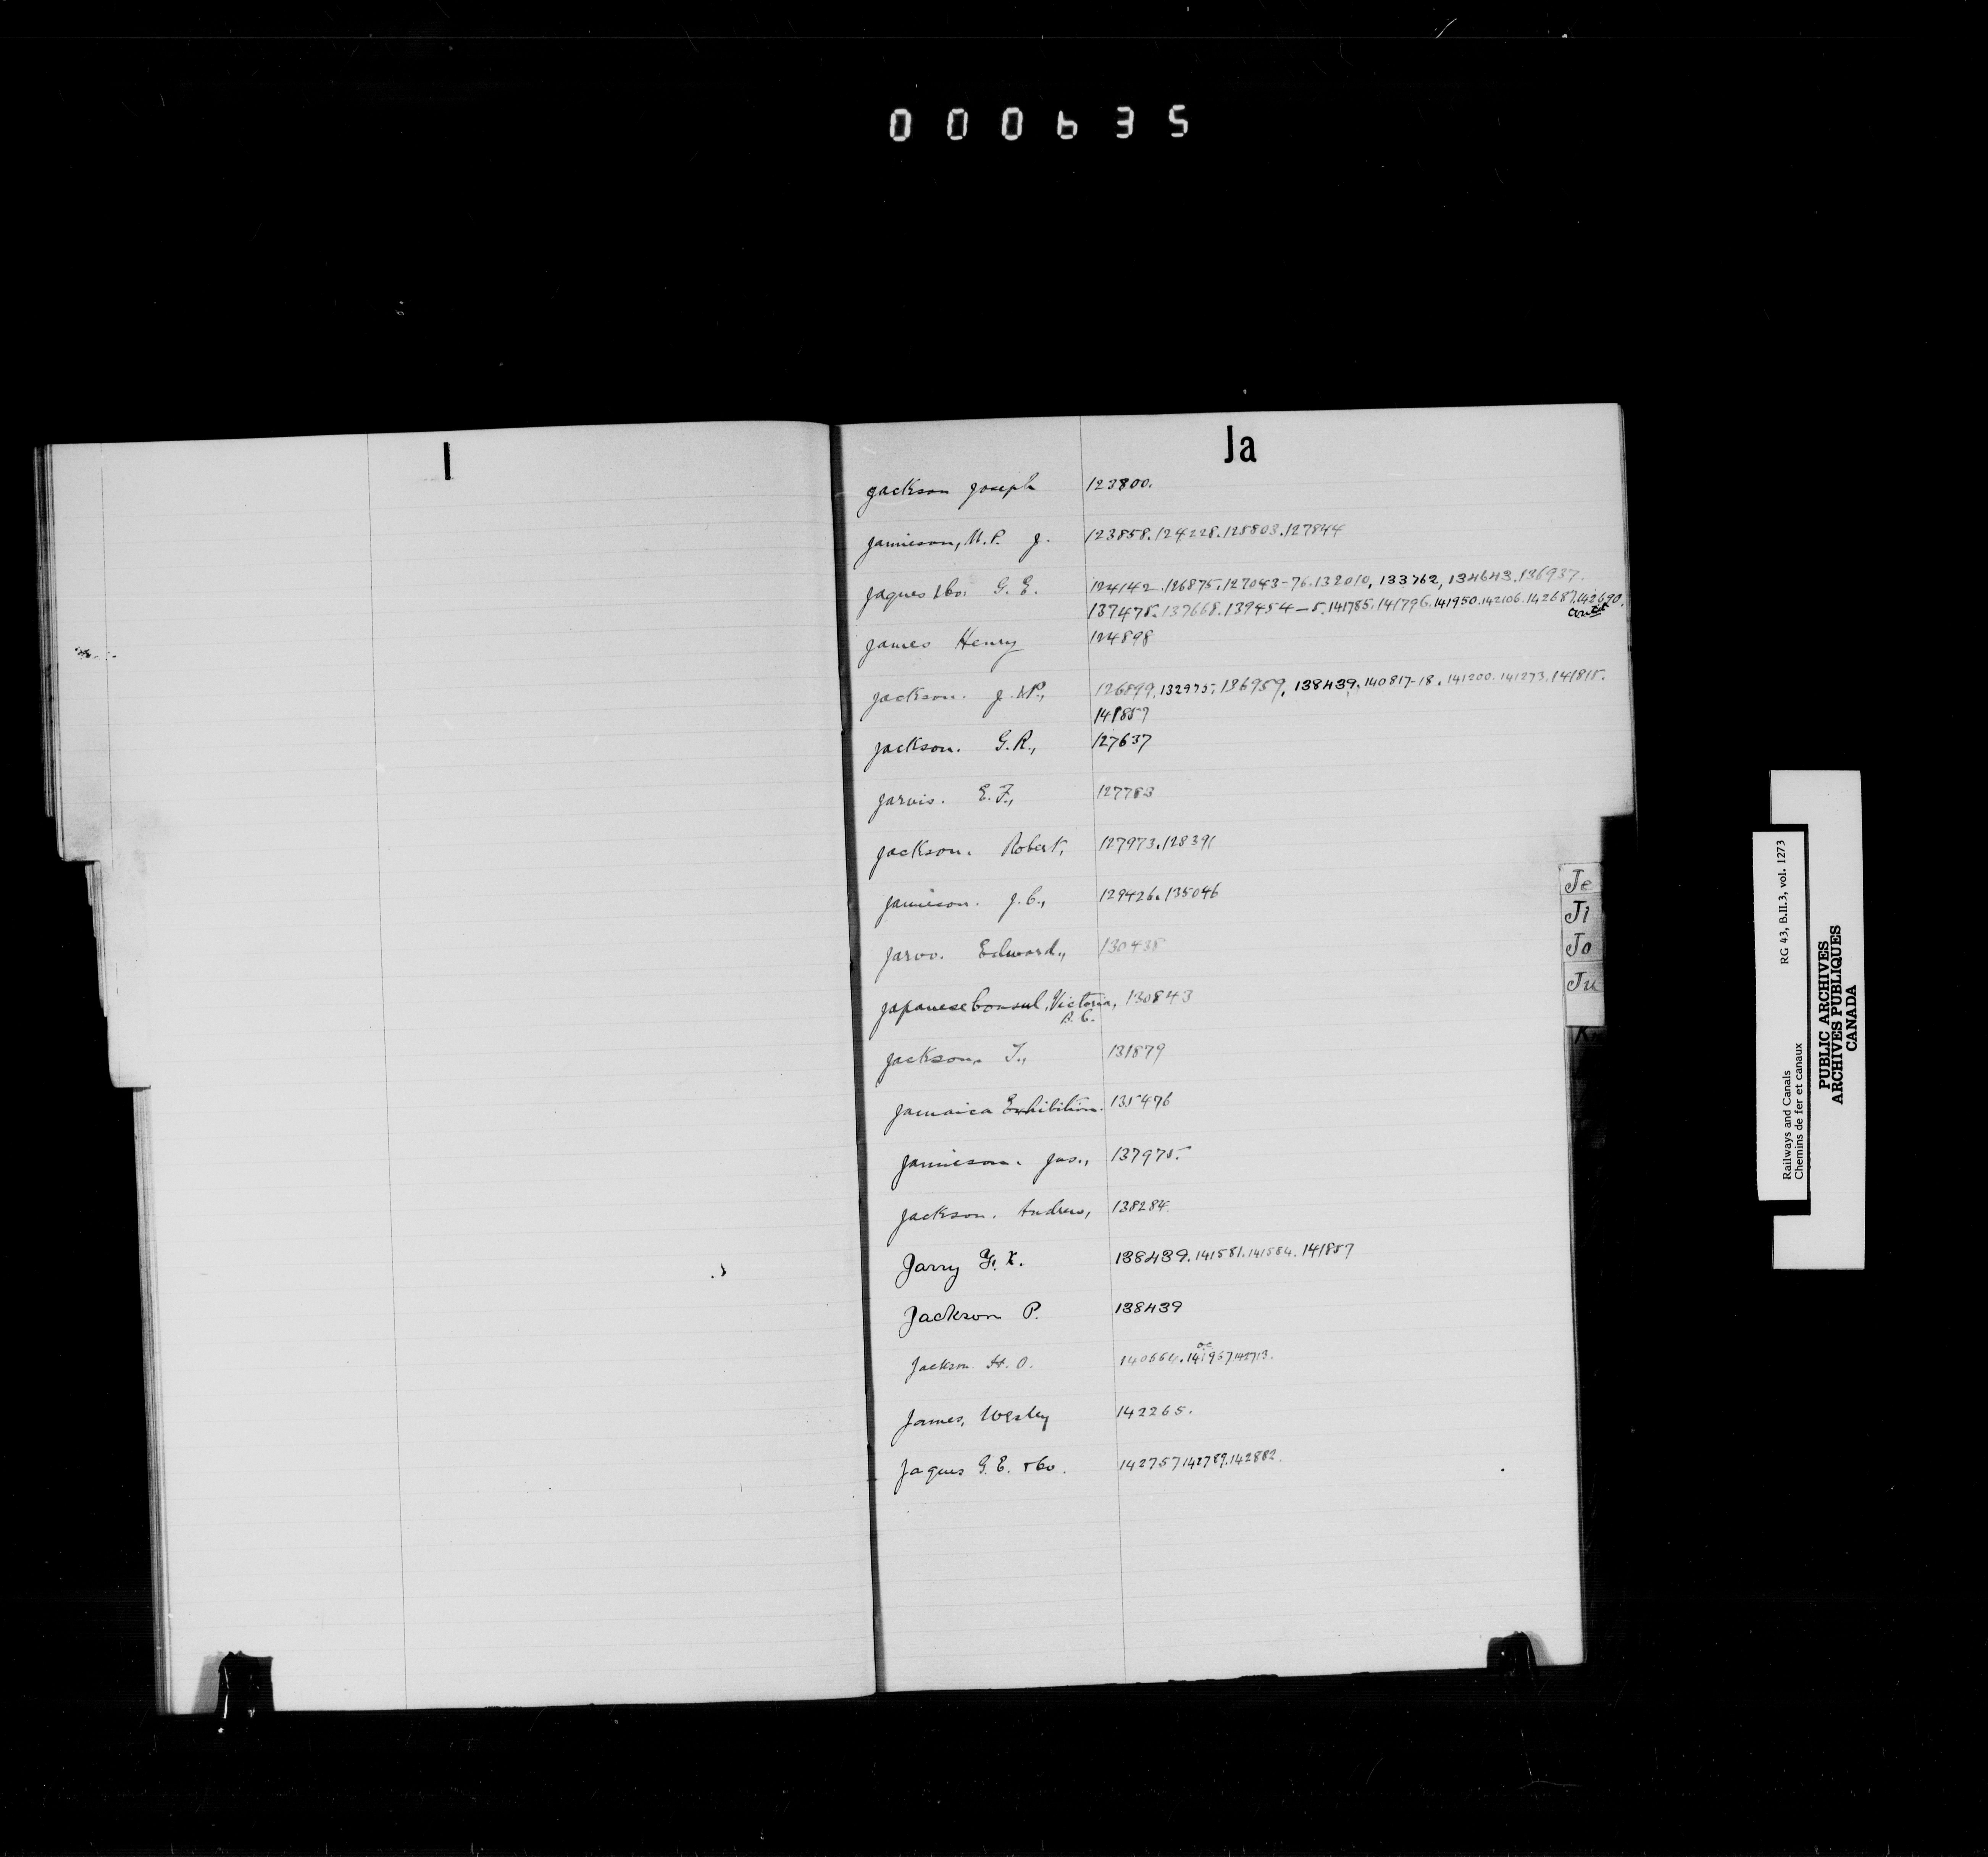 000635
I
Ja
Jackson Joseph 123800.
Jamieson, M.P. J. 123858. 124228. 125803. 127844
Jaques & Co. G. E. 124142. 126875. 127043-76. 132010, 133762, 134643. 136937.
137475. 137668. 139454-5. 141785. 141796. 141950. 142106. 142687. 142690.
James Henry 124898
Jackson. J. 126899. 132975. 136959, 138439. 140817-18. 141200. 141273. 141815.
141857
Jackson. G.R., 127637
Jarvis. E.F., 127783
Jackson. Robert, 127973. 128391
Jamieson. J.C., 129426. 135046
Jarvo. Edward., 130435
Japanese Consul, Victoria, 130843
B.C.
Jackson. T., 131879
Jamaica Exhibition. 135476
Jamieson. Jas., 137975.
Jackson. Andrew, 138284.
Jarry F. X. 138439. 141581. 141584. 141857
Jackson P. 138439
Jackson H. O. 140664. 141957. 142713.
James, Wesley 142265.
Jaques G. E. & Co. 142757 142789. 142882.
Je
Ji
Jo
Ju
K
Railways and Canals RG 43, B.II.3, vol. 1273
Chemins de fer et canaux
PUBLIC ARCHIVES
ARCHIVES PUBLIQUES
CANADA